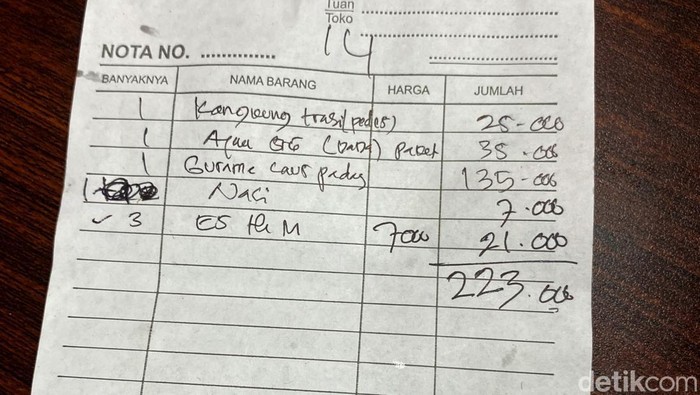 Tuan
Toko
14
NOTA NO. ..............
BANYAKNYA NAMA BARANG HARGA JUMLAH
1 Kangkung trasi (pedes) 25-000
1 (bara) paket 35.000
1 Gurame saus padang 135-000
1 Nasi 7.000
✓ 3 ES teh M 7000 21.000
223.000
detikcom